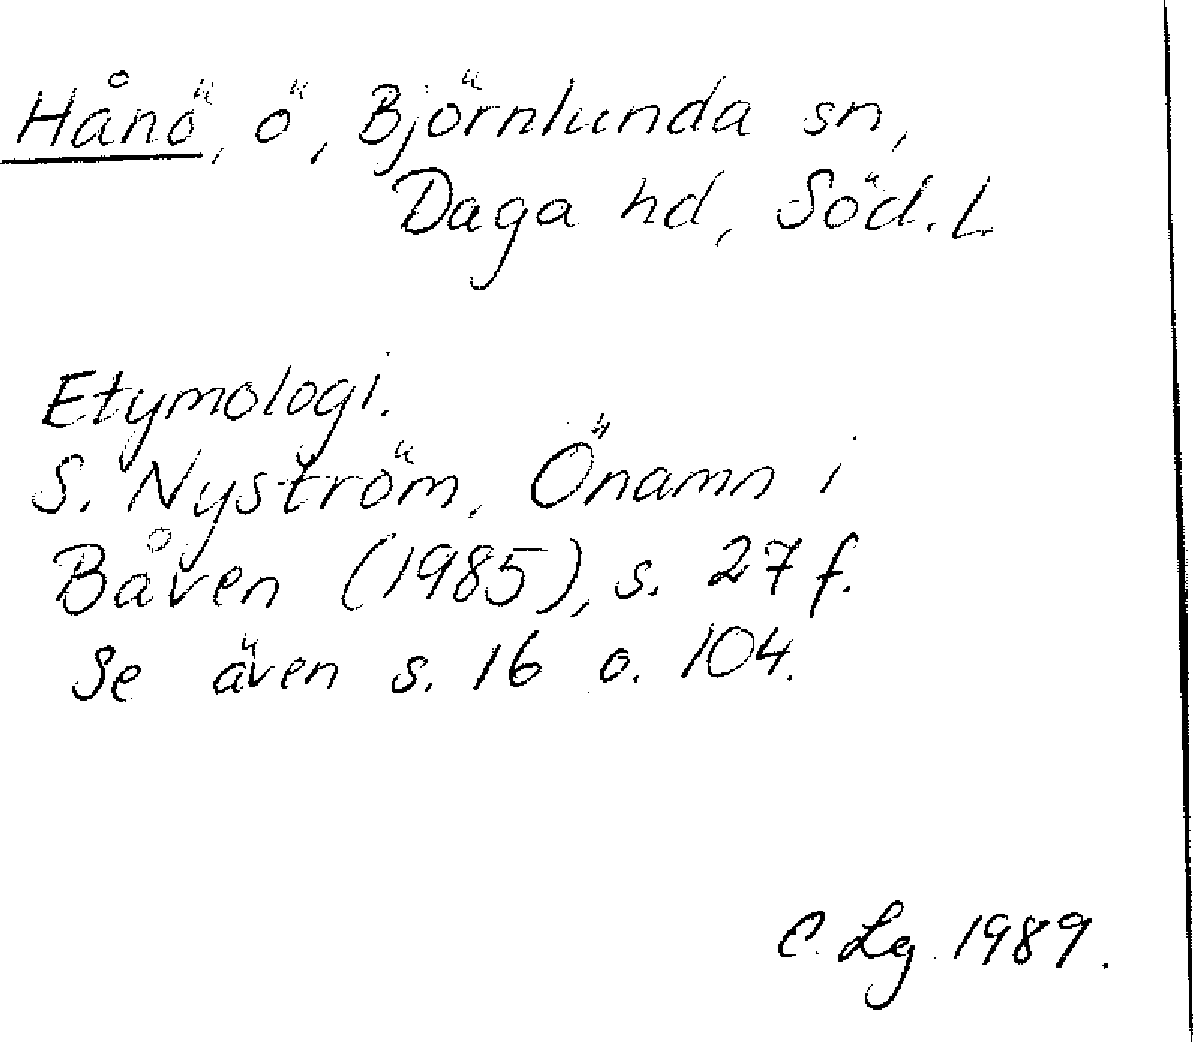 Hånö, ö, Björnlunda sn,
Daga hd, Söd. L
Etymologi.
S. Nyström, Önamn i
Båven (1985), s. 27 f.
Se även s. 16 o. 104.
C. Lg. 1989.